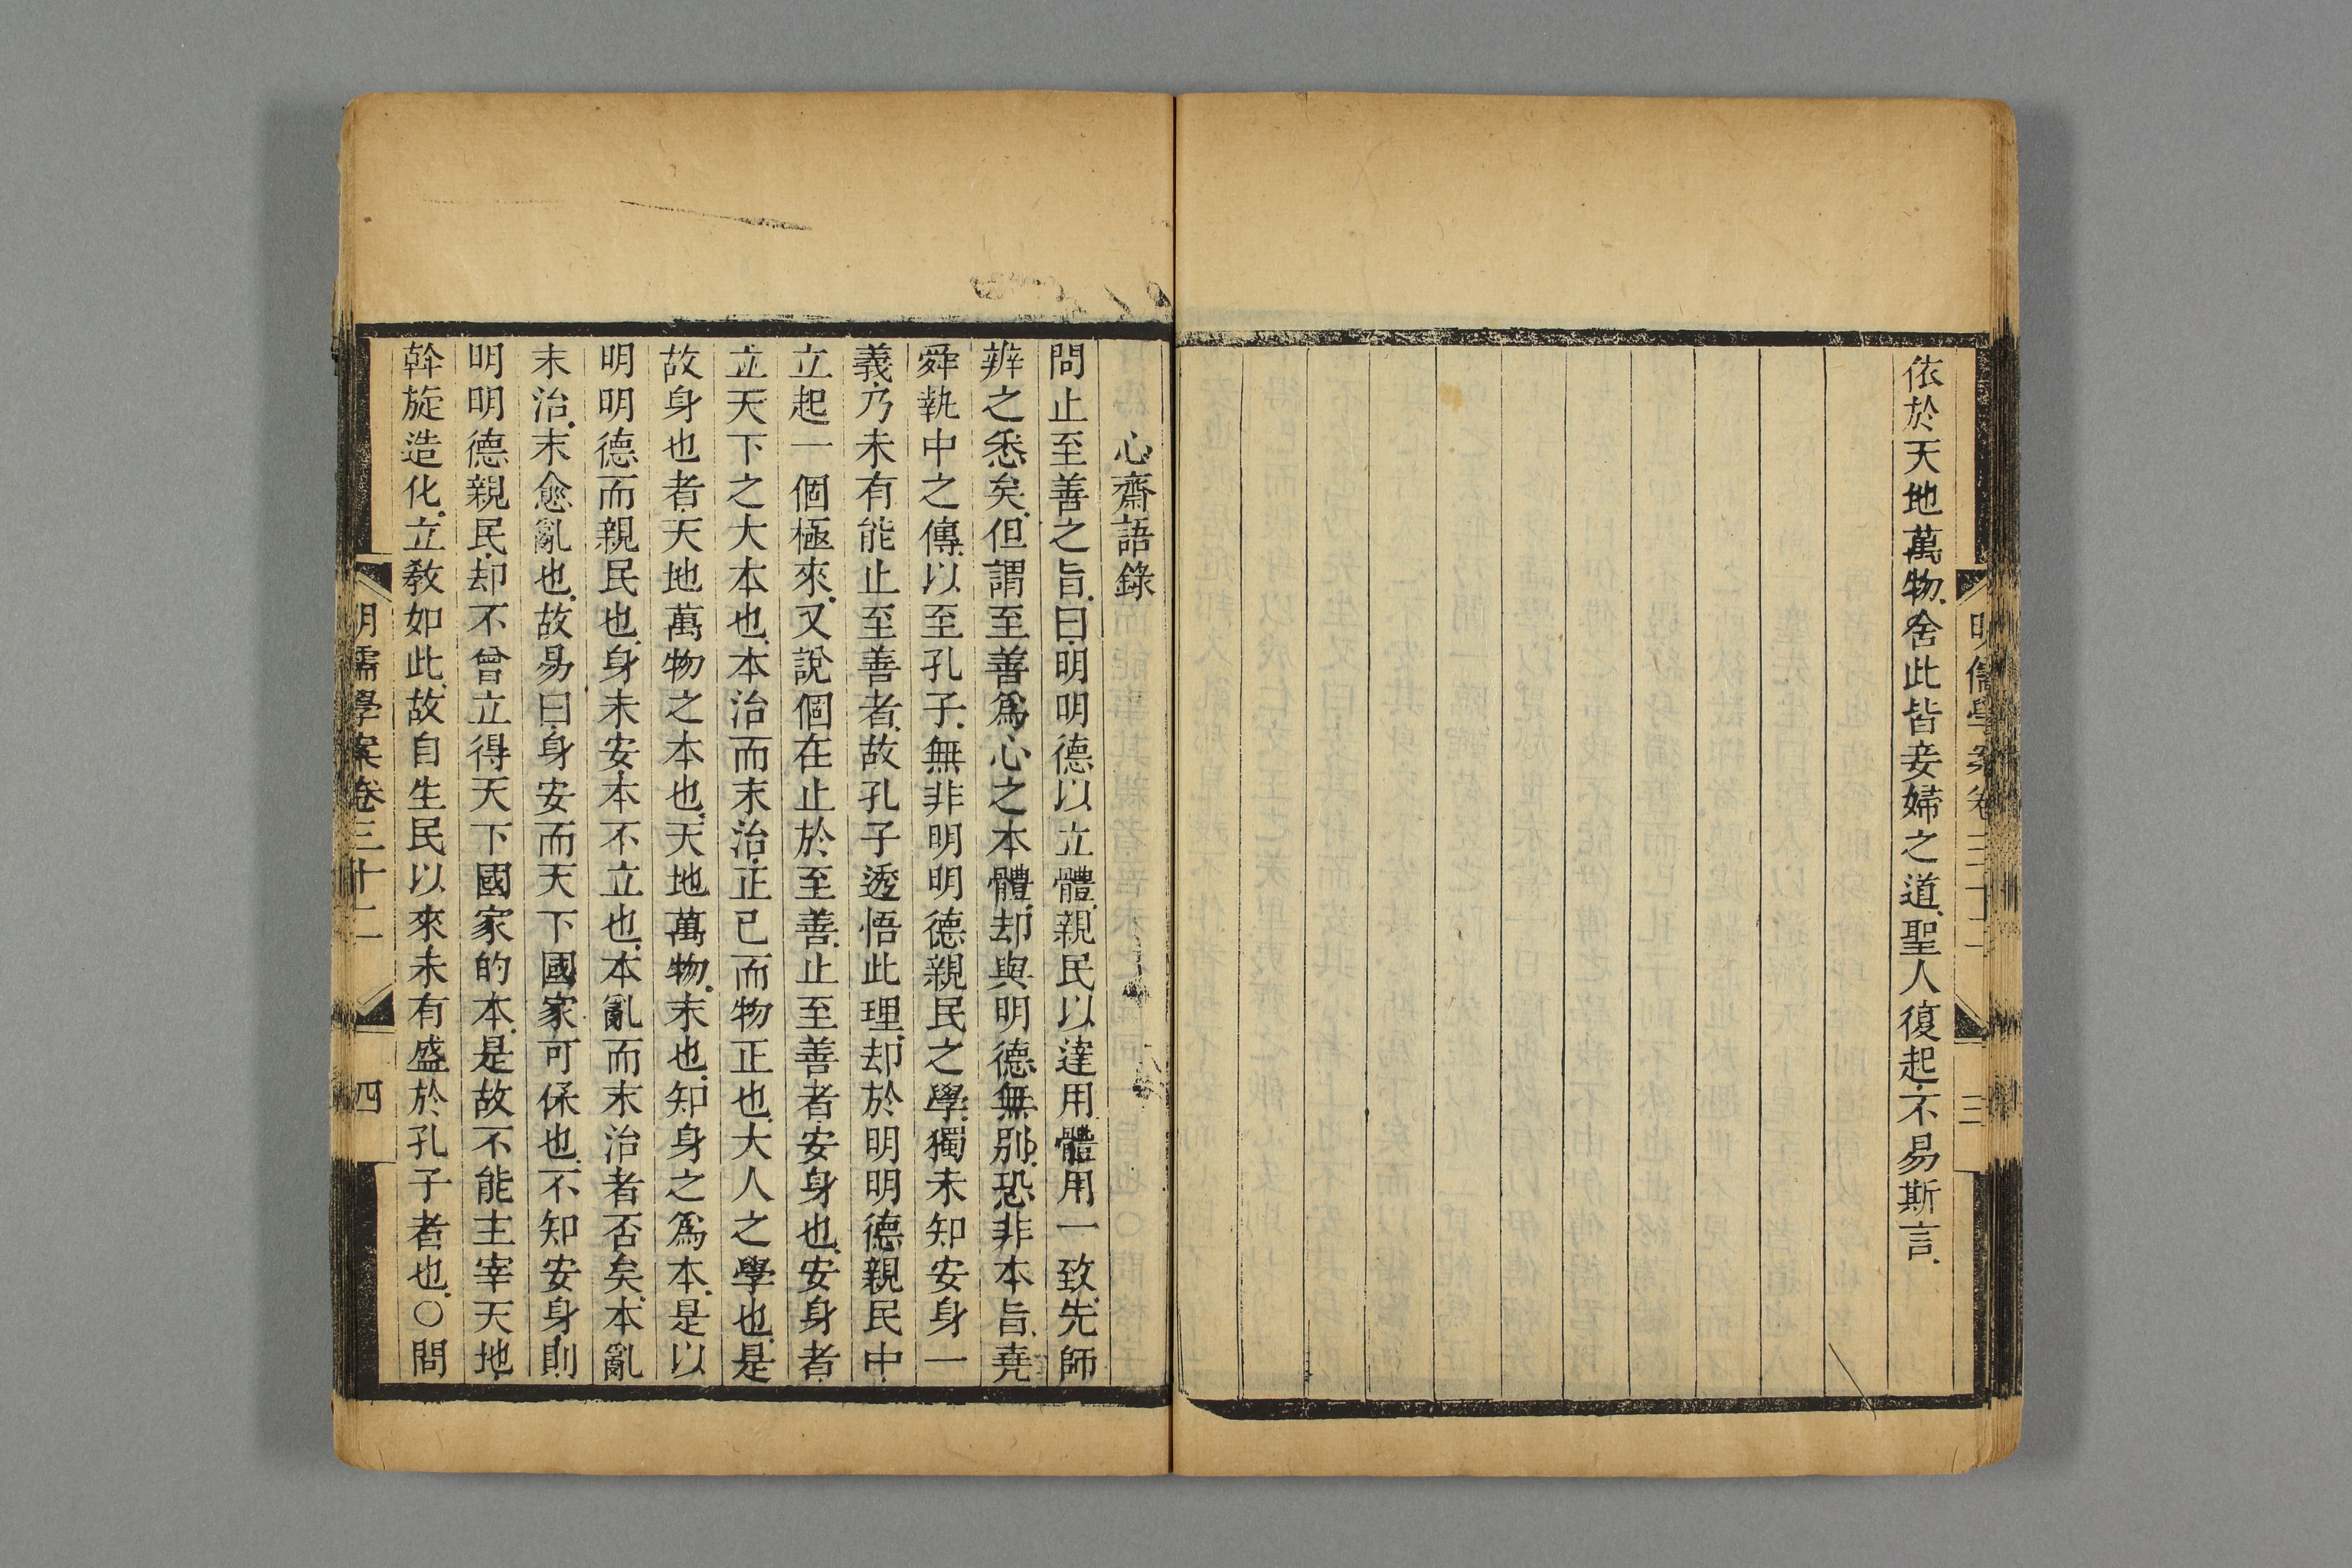 明儒學案卷三十二 三
依於天地萬物.舍此皆妾婦之道.聖人復起.不易斯言.
心齋語錄
問止至善之旨.曰.明明德以立體.親民以達用.體用一致.先師
辨之悉矣.但謂至善爲心之本體.却與明德無別.恐非本旨.堯
舜執中之傳.以至孔子.無非明明德親民之學.獨未知安身一
義.乃未有能止至善者.故孔子透悟此理.却於明明德親民中.
立起一個極來.又說個在止於至善.止至善者.安身也.安身者.
立天下之大本也.本治而末治.正已而物正也.大人之學也.是
故身也者.天地萬物之本也.天地萬物.末也.知身之爲本.是以
明明德而親民也.身未安.本不立也.本亂而末治者否矣.本亂
末治.末愈亂也.故易曰.身安而天下國家可保也.不知安身.則
明明德親民.却不曾立得天下國家的本.是故不能主宰天地.
斡旋造化.立教如此.故自生民以來.未有盛於孔子者也.○問
明儒學案卷三十二 四